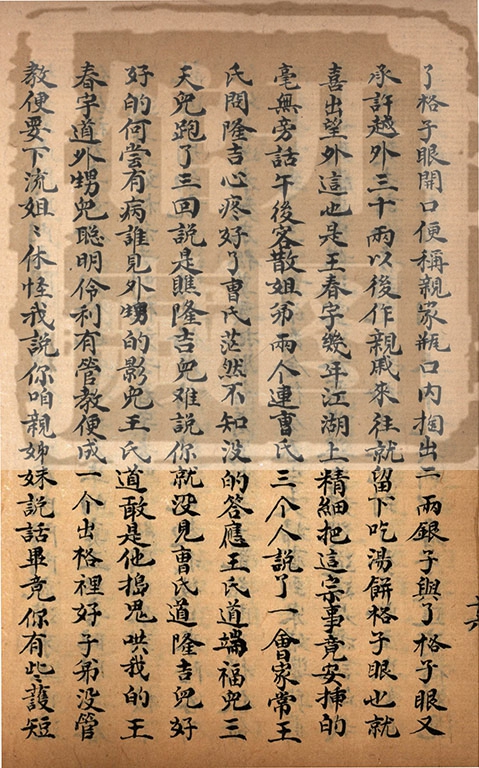 了格子眼開口便稱親家瓶口內掏出二兩銀子與了格子眼又
承許越外三十兩以後作親戚來往就留下吃湯餅格子眼也就
喜出望外這也是王春宇幾年江湖上精細把這宗事竟安揷的
毫無旁話午後客散姐弟兩个連曹氏三个人說了一會家常王
氏問隆吉心疼好了曹氏茫然不知没的答應王氏道端福兒三
天兒跑了三回說是瞧隆吉兒难說你就没見曹氏道隆吉兒好
好的何嘗有病誰見外甥的影兒王氏道敢是他搗鬼哄我的王
春宇道外甥兒聰明伶利有管教便成一个出格裡好子弟没管
教便要下流姐〻休怪我說你咱親姊妹說話畢竟你有些護短